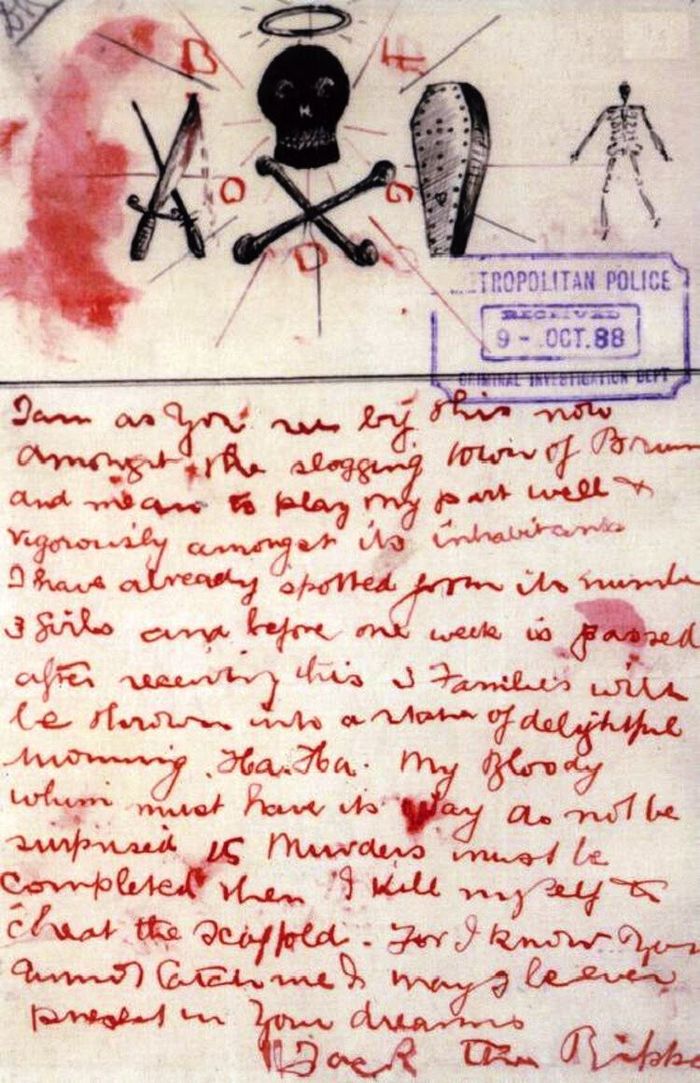 B F
O G
D
TROPOLITAN POLICE
RECEIVED
9 - .OCT.88
CRIMINAL INVESTIGATION DEPT
I am as you see by this now
amongst the slogging town of Brum
and mean to play my part well &
vigorously amongst its inhabitants
I have already spotted form its numbe
3 Girls and before one week is passed
after receiving this 3 Families will
be thrown into a state of delightful
mourning. Ha. Ha. My Bloody
whim must have its way do not be
surprised 15 Murders must be
completed then I kill myself to
cheat the scaffold. For I know you
cannot catch me & may I be ever
present in your dreams
Jack the Ripp